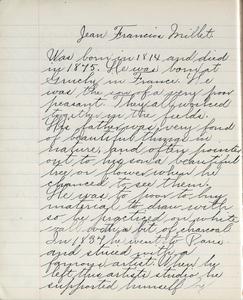 Jean Francois Millet.
Was born in 1814 and died
in 1875. He was born at
Gruchy in France. He
was the son of a very poor
peasant. They all worked
in the fields.
His father was very fond
of beautiful things in
nature and often pointed
out to his son a beautiful
tree or flower when he
chanced to see them.
He was to poor to buy
material to draw with
so he practiced on white
wall with a bit of charcoal
In 1837 he went to Paris
and studied with a
famous artist. When he
left this artists studio he
supported himself by